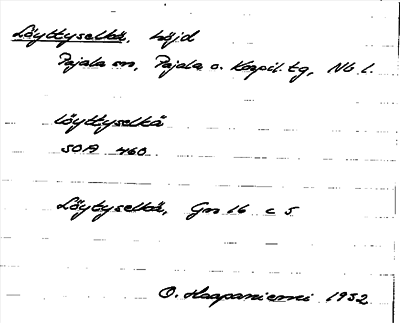 Löyttyselkä, höjd
Pajala sn, Pajala o. Korpil. tg, Nb l.
löyttyselkä
SOA 460
Löytyselkä, Gn 16 c 5
O. Haapaniemi 1932